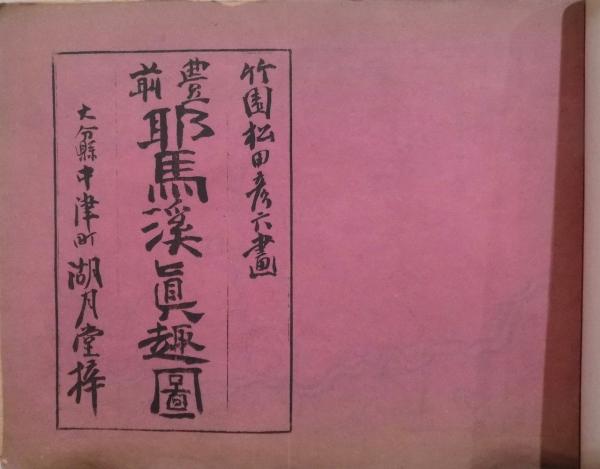 竹園松田彦六畫
豊前
耶馬溪眞趣圖
大分縣中津町湖月堂梓